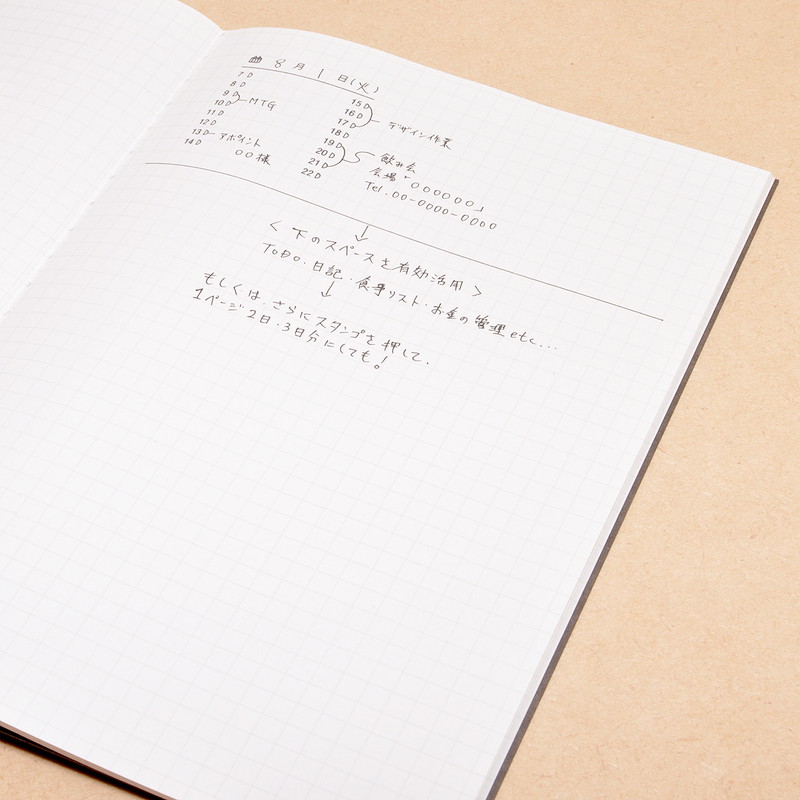 8月1日(火)
7
8
9
10 MTG
11
12
13 アポイント
14 ○○様
15
16
17 デザイン作業
18
19
20 飲み会
21 会場「○○○○○○」
22 Tel.00-0000-0000
↓
<下のスペースを有効活用>
ToDo.日記.食事リスト.お金の管理etc...
↓
もしくは.さらにスタンプを押して.
1ページ2日.3日分にしても!